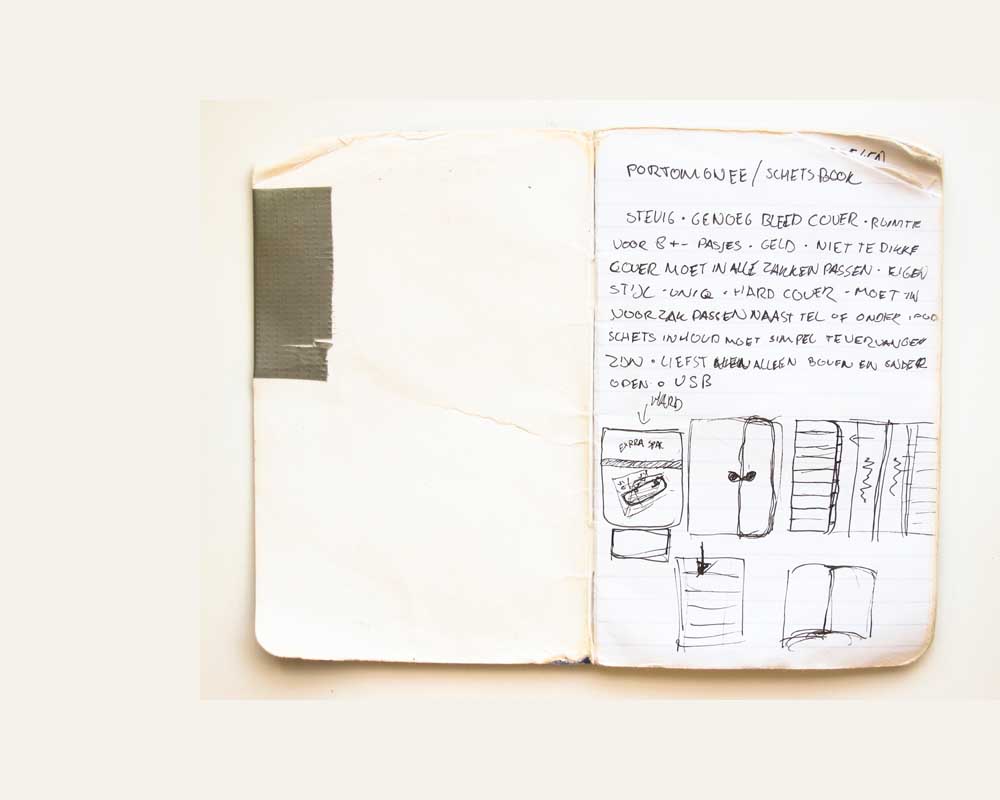 PORTOMONEE/SCHETSBOOK
STEVIG · GENOEG BLEED COVER · RUIMTE
VOOR 8 +- PASJES · GELD · NIET TE DIKKE
COVER MOET IN ALLE ZAKKEN PASSEN · EIGEN
STIJL · UNIQ · HARD COVER · MOET IN
VOORZAK PASSEN NAAST TEL OF ONDER IPOD
SCHETS INHOUD MOET SIMPEL TE VERVANGEN
ZIJN · LIEFST ALLEEN BOVEN EN ONDER
· USB
HARD
EXTRA